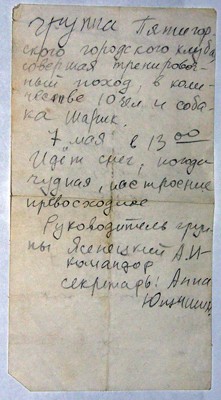 группа Пятигор-
ского городского клуба
совершая трениро-
ный поход, в коли-
честве 10 чел и соба-
ка Шарик.
7 мая в 13 00
Идёт снег, погода
чудная, настроение
превосходное
Руководитель груп-
пы Ясенецкий А.И-
командор
секретарь: Анна